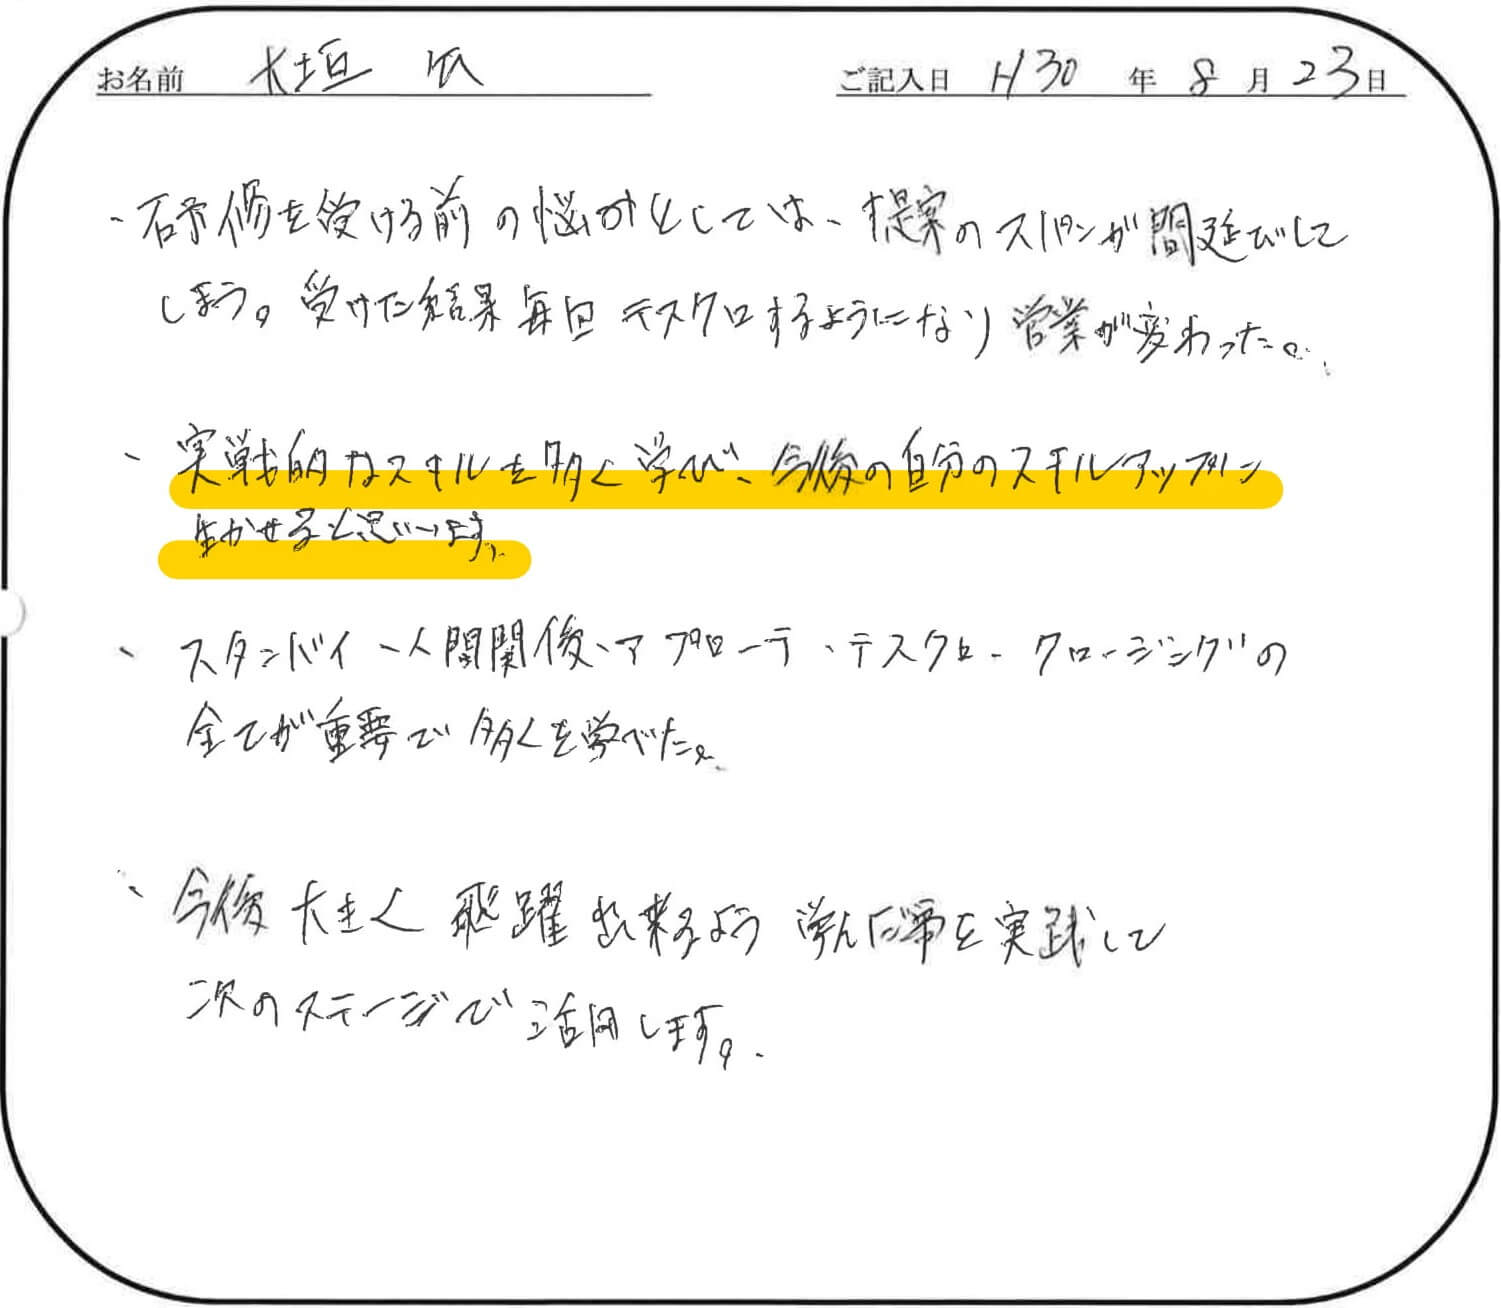 お名前 大垣 ご記入日 H30 年 8 月 23日
・研修を受ける前の悩みとしては、提案のスパンが間延びして
しまう。受けた結果毎回テスクロするようになり営業が変わった。
・実戦的なスキルを多く学び、今後の自分のスキルアップに
生かせると思います。
・スタンバイ、人間関係、アプローチ、テスクロ、クロージングの
全てが重要で多くを学べた。
・今後大きく飛躍出来るよう学んだ事を実践して
次のステージで活用します。